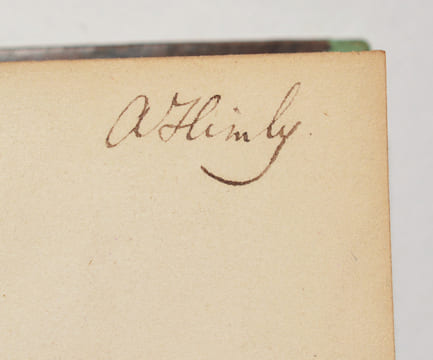 A Himly.